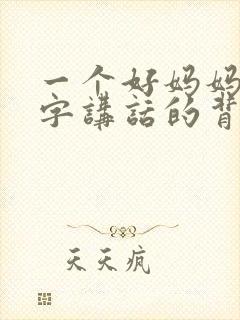 一个好妈妈
字講話的背
天天疯